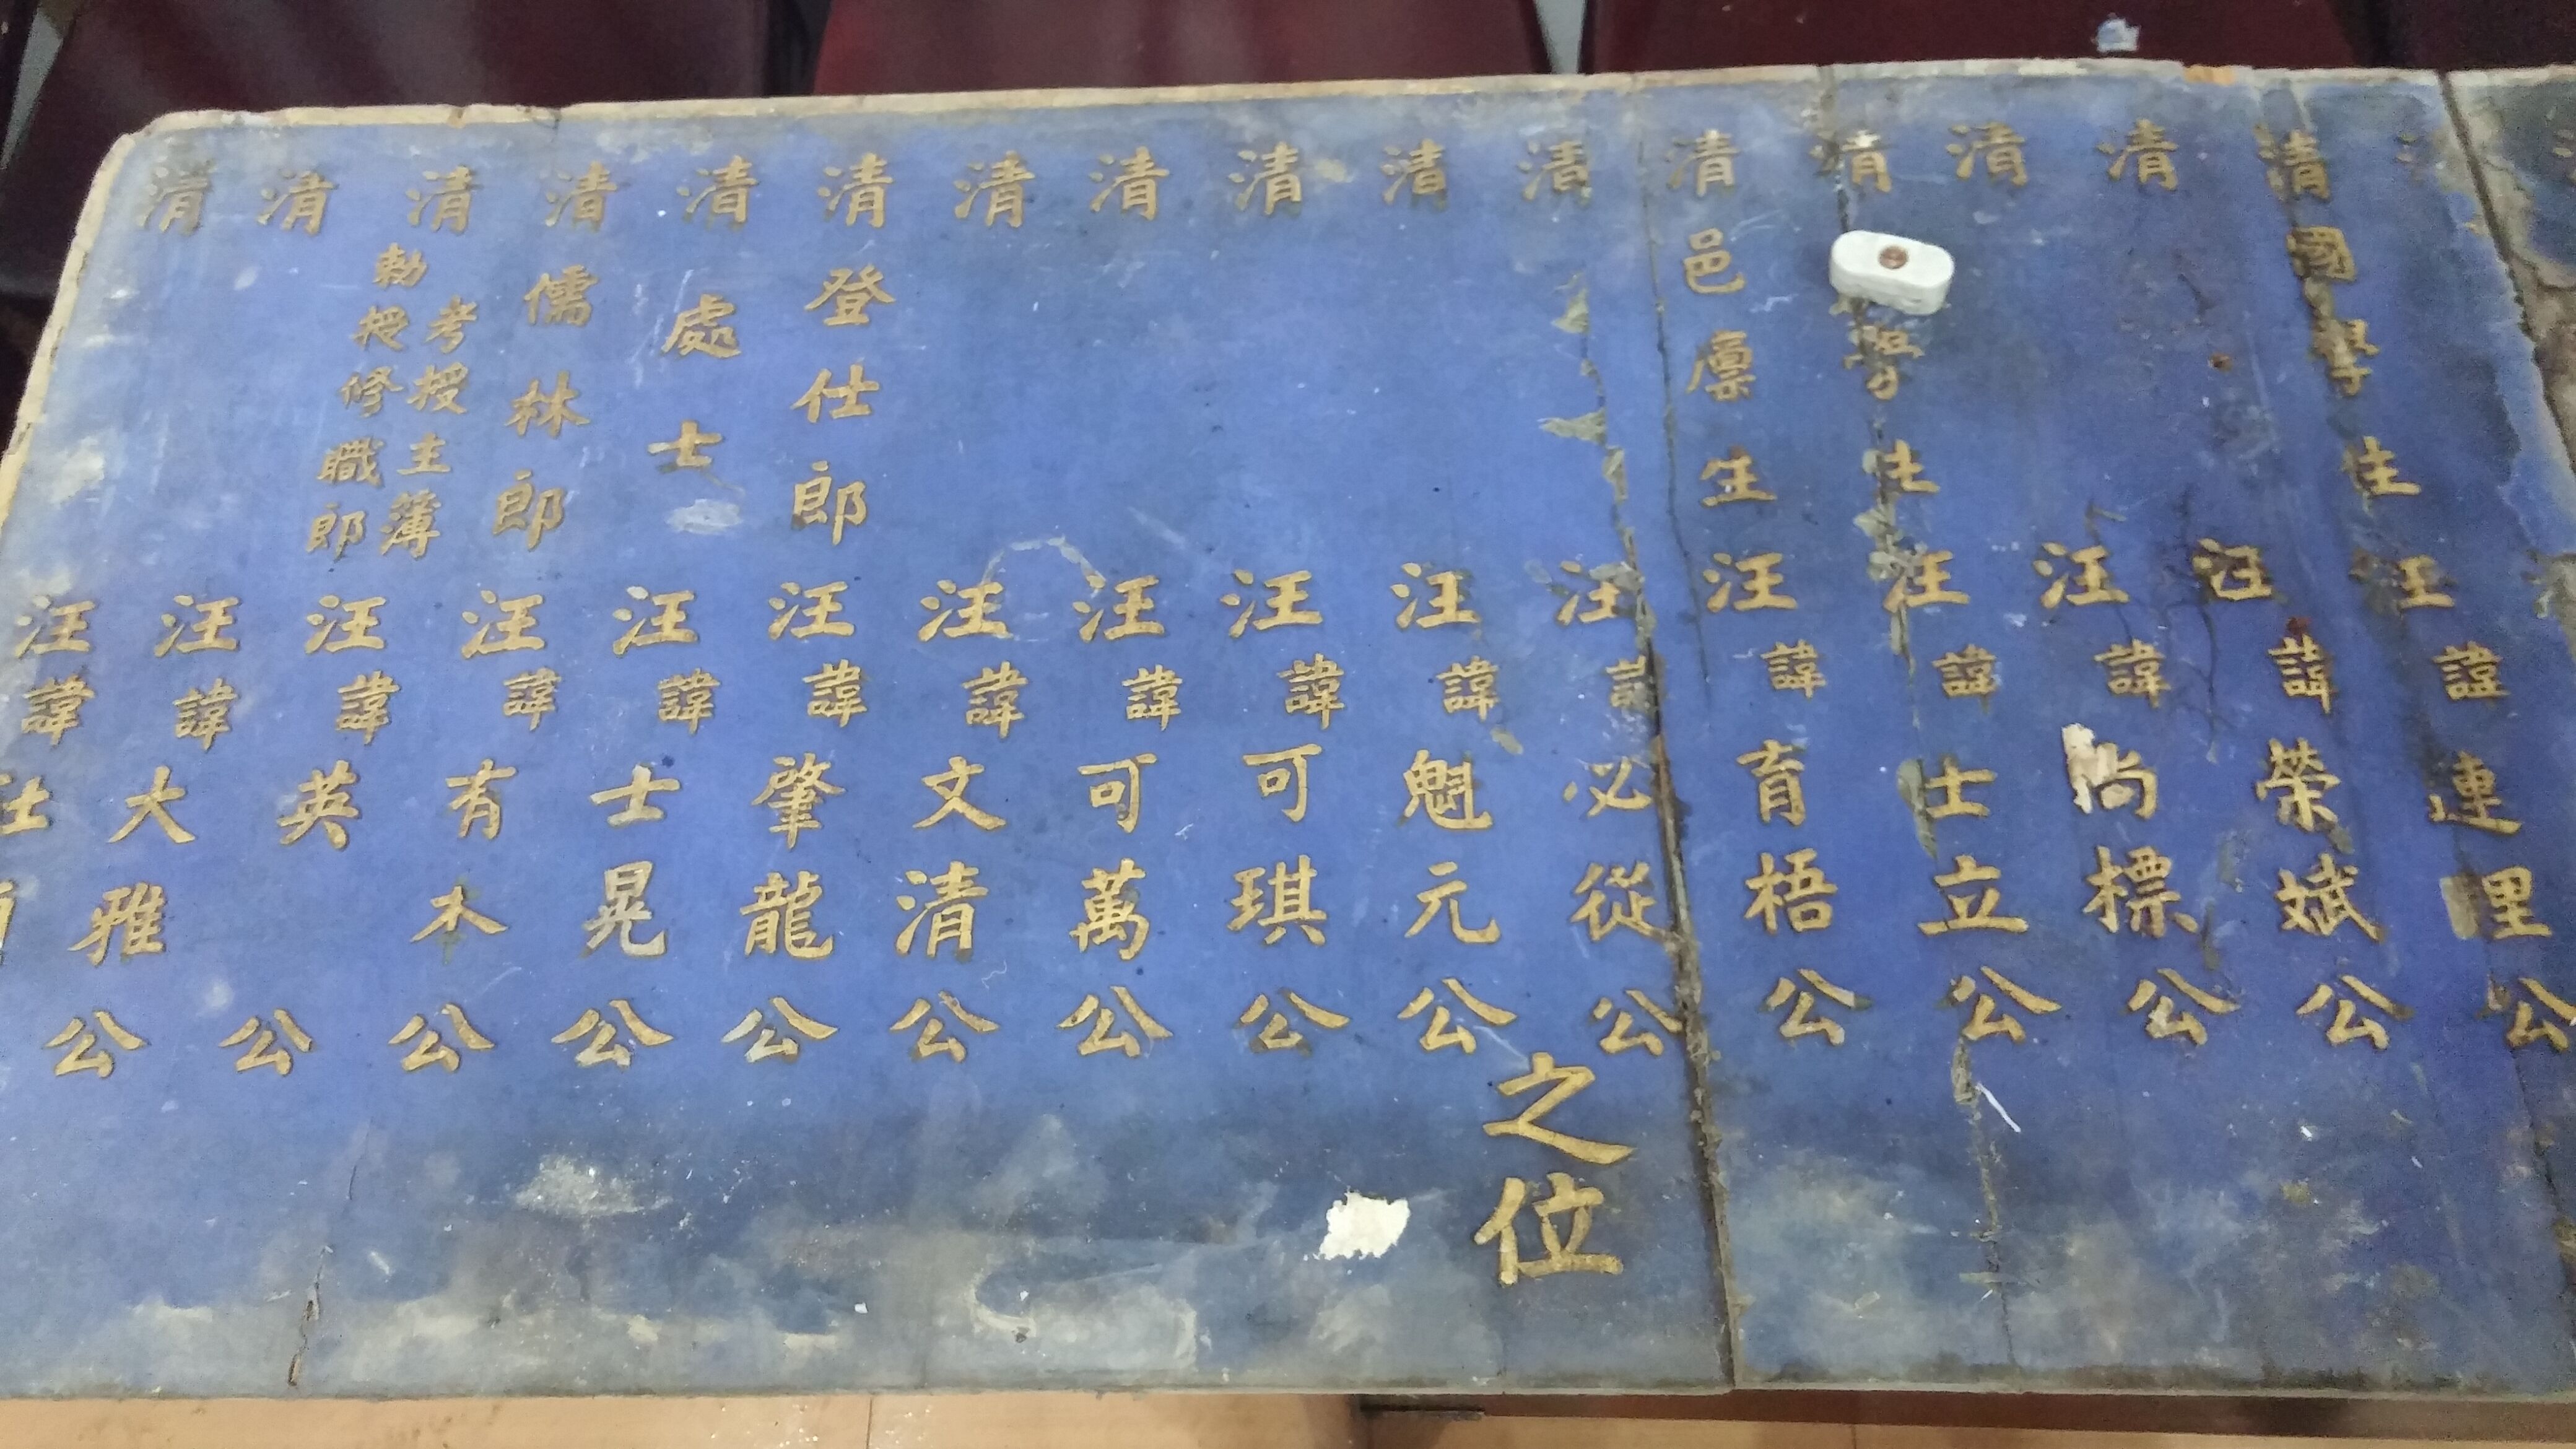 清國學生汪諱連理公
清汪諱榮斌公
清汪諱尚標公
清學生汪諱士立公
清邑廩生汪諱育梧公
清汪諱必從公
之位
清汪諱魁元公
清汪諱可琪公
清汪諱可萬公
清汪諱文清公
清登仕郎汪諱肇龍公
清處士汪諱士晃公
清儒林郎汪諱有木公
清考授主簿勅授修職郎汪諱英公
清汪諱大雅公
清汪諱仕公